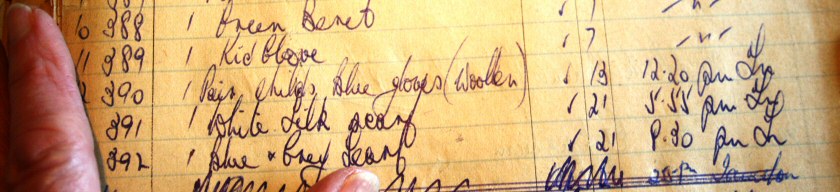 10 388 1 Green Beret 1 " "
11 389 1 Kid Glove 7 " "
2 390 1 Pair childs blue gloves (woollen) 13 12.20 pm
391 1 White Silk scarf 21 5.55 pm
392 1 Blue & Grey Scarf 21 8.30 pm